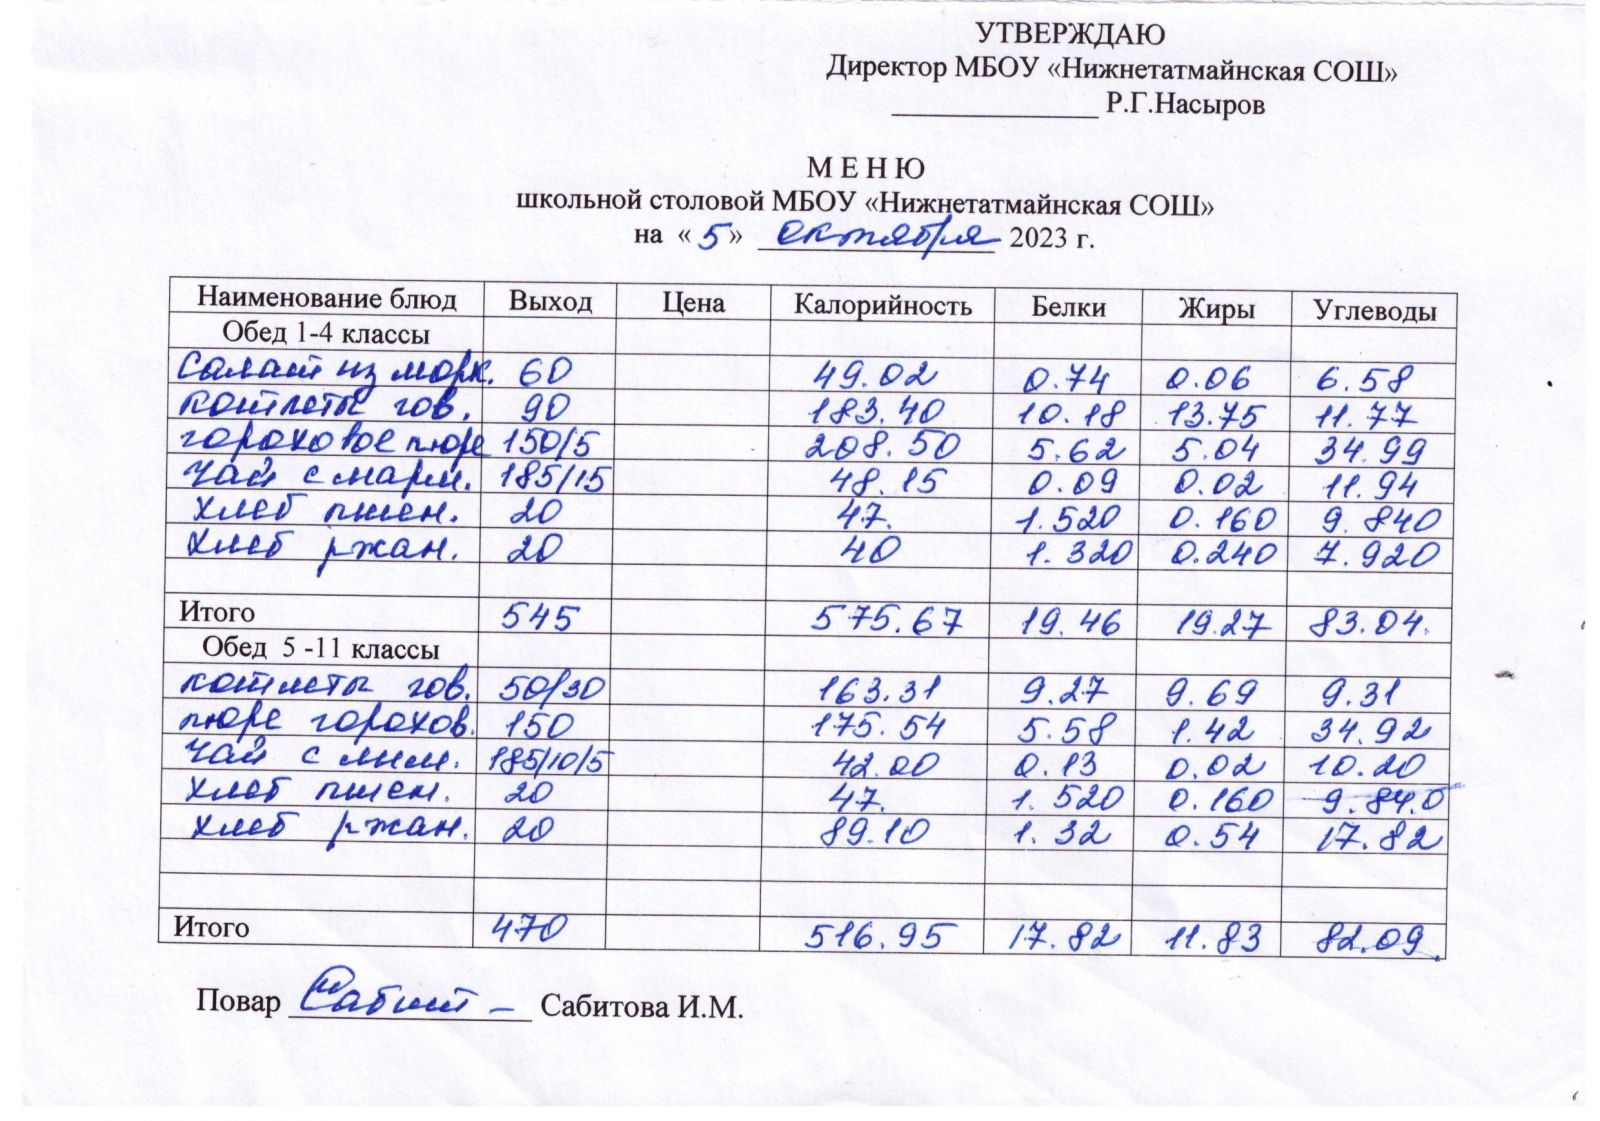 УТВЕРЖДАЮ
Директор МБОУ «Нижнетатмайнская СОШ»
_______________ Р.Г.Насыров
М Е Н Ю
школьной столовой МБОУ «Нижнетатмайнская СОШ»
на « 5 » октября 2023 г.
Наименование блюд Выход Цена Калорийность Белки Жиры Углеводы
Обед 1-4 классы
Салат из морк. 60 49.02 0.74 0.06 6.58
котлеты гов. 90 183.40 10.18 13.75 11.77
гороховое пюре 150/5 208.50 5.62 5.04 34.99
чай с марм. 185/15 48.15 0.09 0.02 11.94
хлеб пшен. 20 47. 1.520 0.160 9.840
хлеб ржан. 20 40 1.320 0.240 7.920
Итого 545 575.67 19.46 19.27 83.04.
Обед 5 -11 классы
котлеты гов. 50/30 163.31 9.27 9.69 9.31
пюре горохов. 150 175.54 5.58 1.42 34.92
чай с лим. 185/10/5 42.00 0.13 0.02 10.20
хлеб пшен. 20 47. 1.520 0.160 9.84.0
хлеб ржан. 20 89.10 1.32 0.54 17.82
Итого 470 516.95 17.82 11.83 82.09.
Повар Сабит Сабитова И.М.